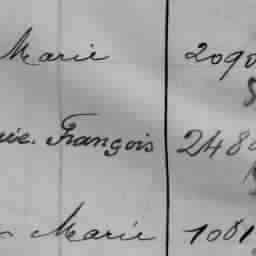 Marie 2090
François 248
Marie 1081